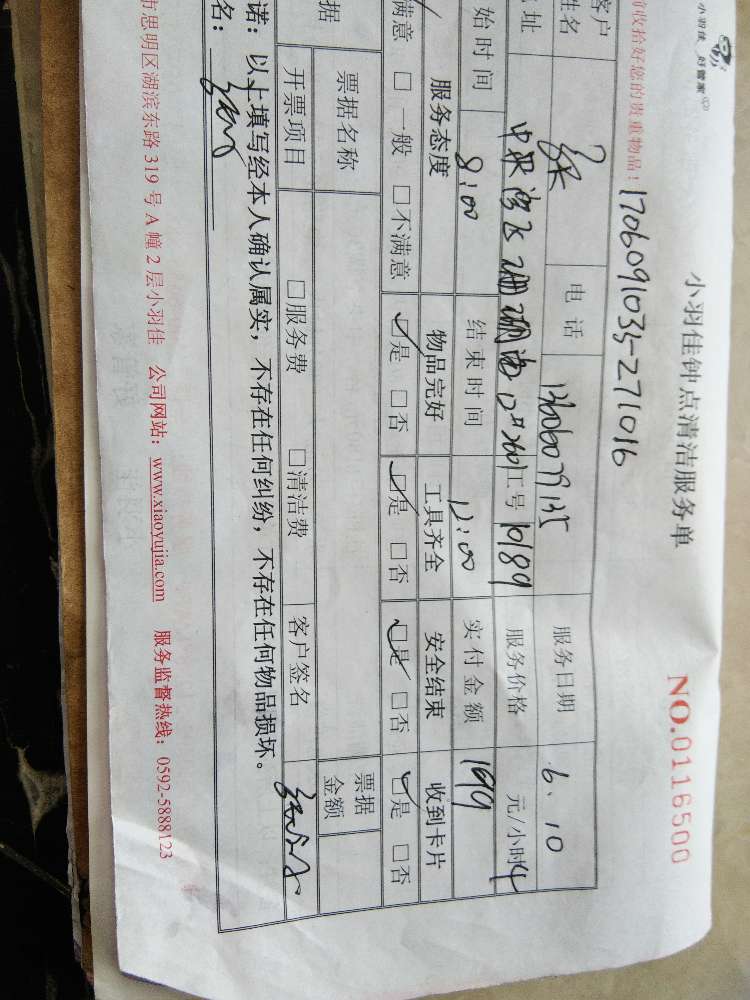 小羽佳 好管家
小羽佳钟点清洁服务单
NO.0116500
前收拾好您的贵重物品！ 1706091035-271016
客户姓名 电话 13606079135 服务日期 6.10
址 工号 10189 服务价格 元/小时
始时间 8:00 结束时间 12:00 实付金额 199
服务态度 物品完好 工具齐全 安全结束 收到卡片
满意 □一般 □不满意 □是 □否 □是 □否 □是 □否 □是 □否
据 票据名称 票据金额
开票项目 □服务费 □清洁费 客户签名
诺：以上填写经本人确认属实，不存在任何纠纷，不存在任何物品损坏。
名：
市思明区湖滨东路 319 号 A 幢 2 层小羽佳 公司网站：www.xiaoyujia.com 服务监督热线：0592-5888123